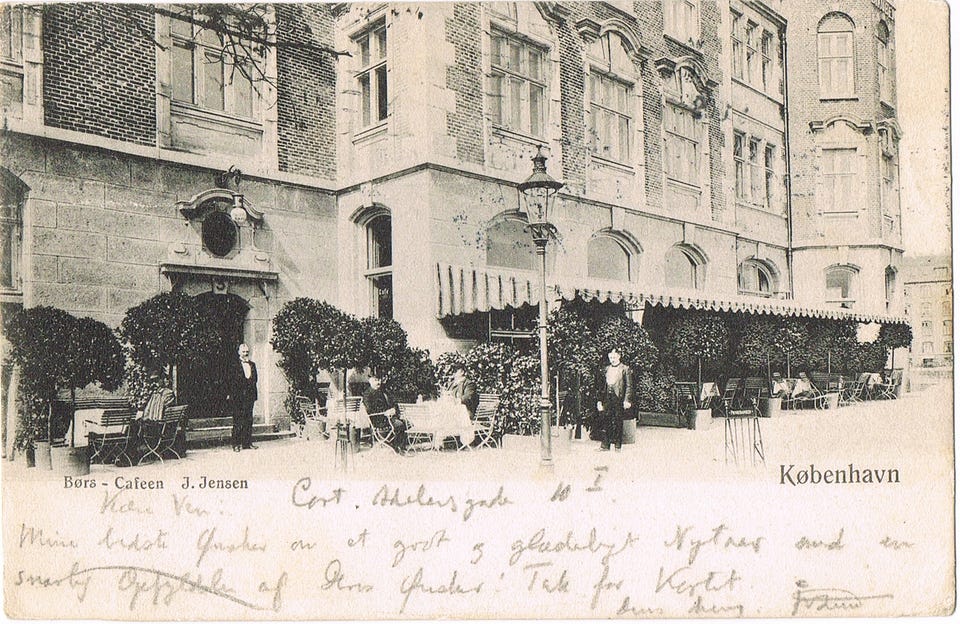 Børs - Cafeen J. Jensen
København
Kære Ven.
Cort. Adelersgade 10 I
Mine bedste Ønsker om et godt og glædeligt Nytaar med en
snarlig Opfyldelse af Deres Ønsker! Tak for Kortet.